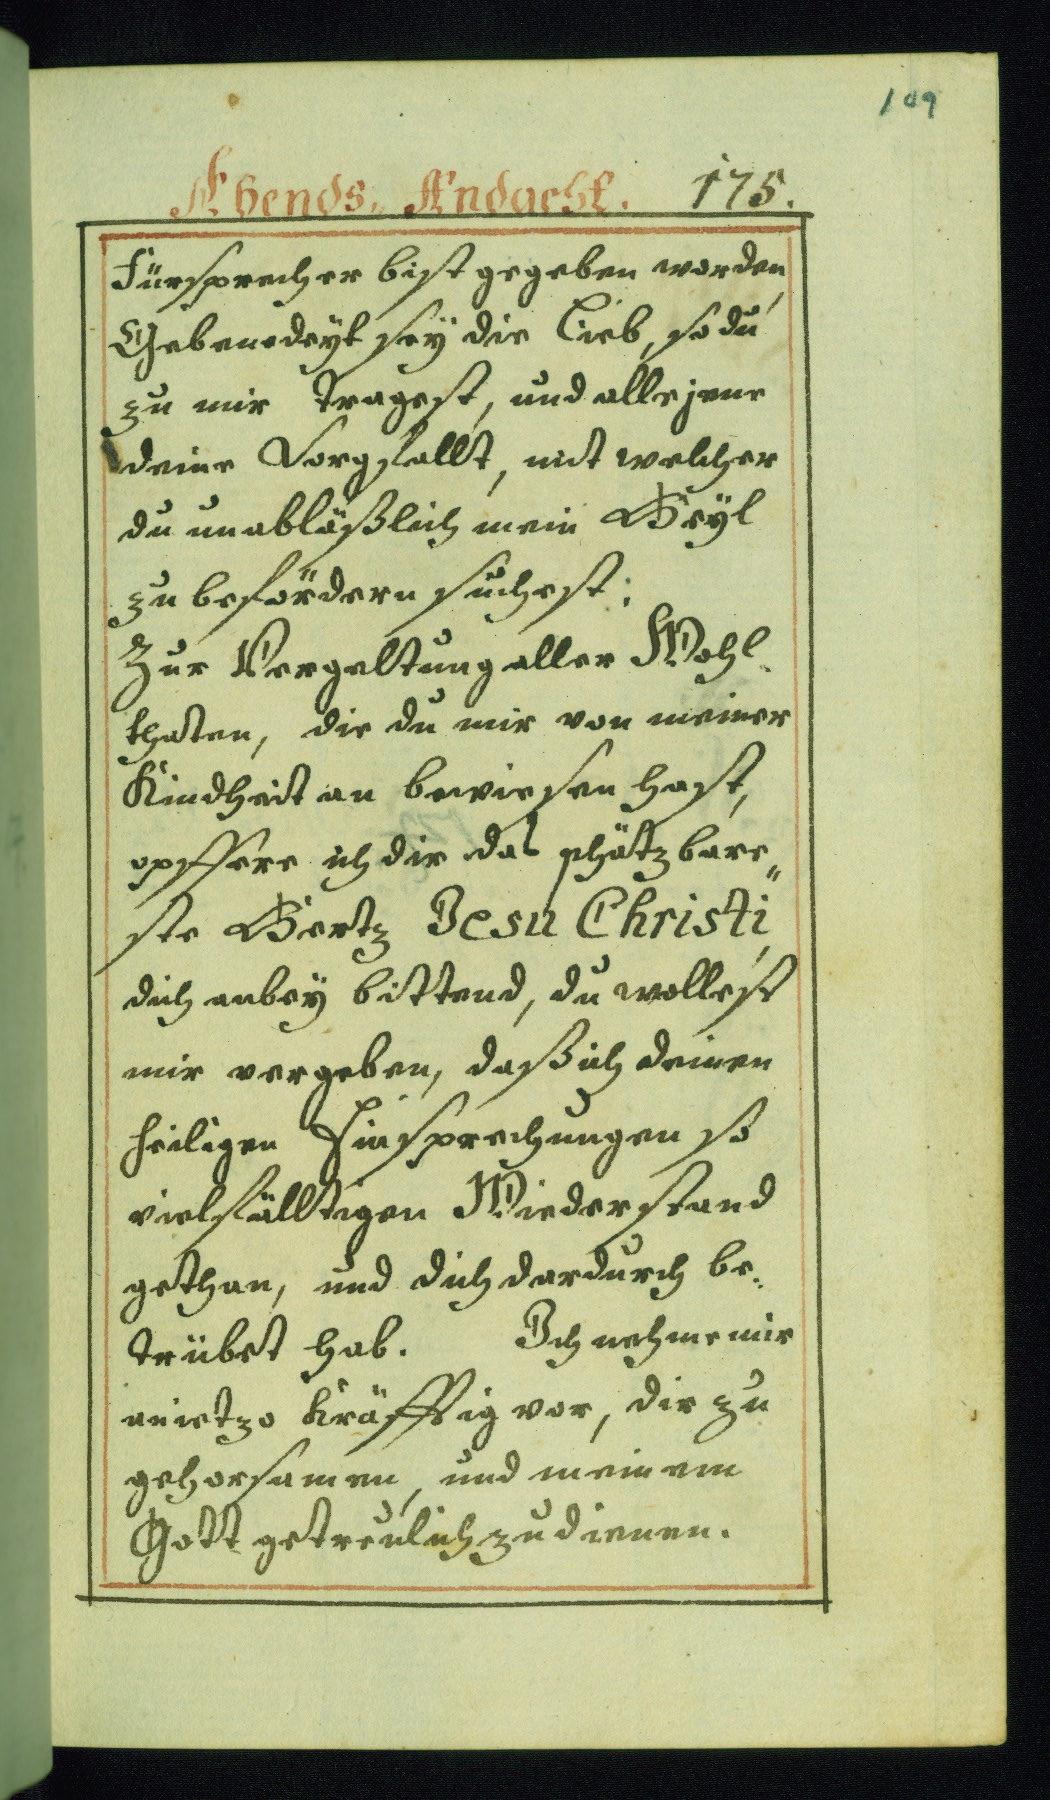 109
Abends. Andacht. 175.
Fürsprecher bist gegeben worden,
Gebenedeyt seÿ die Lieb, so du
zu mir tragest, und alle jene
deine Sorgfallt, mit welcher
du unabläßlich mein Heÿl
zu befördern suchest:
Zur Vergeltung aller Wohl-
thaten, die du mir von meiner
Kindheit an bewiesen hast,
opffere ich dir das schätzbare"
ste Hertz Jesu Christi,
dich anbeÿ bittend, du wollest
mir vergeben, daß ich deinen
heiligen Einsprechungen so
vielfälltigen Wiederstand
gethan, und dich dardurch be-
trübet hab. Ich nehme mir
anietzo kräfftig vor, dir zu
gehorsamen, und meinem
Gott getreulich zu dienen.